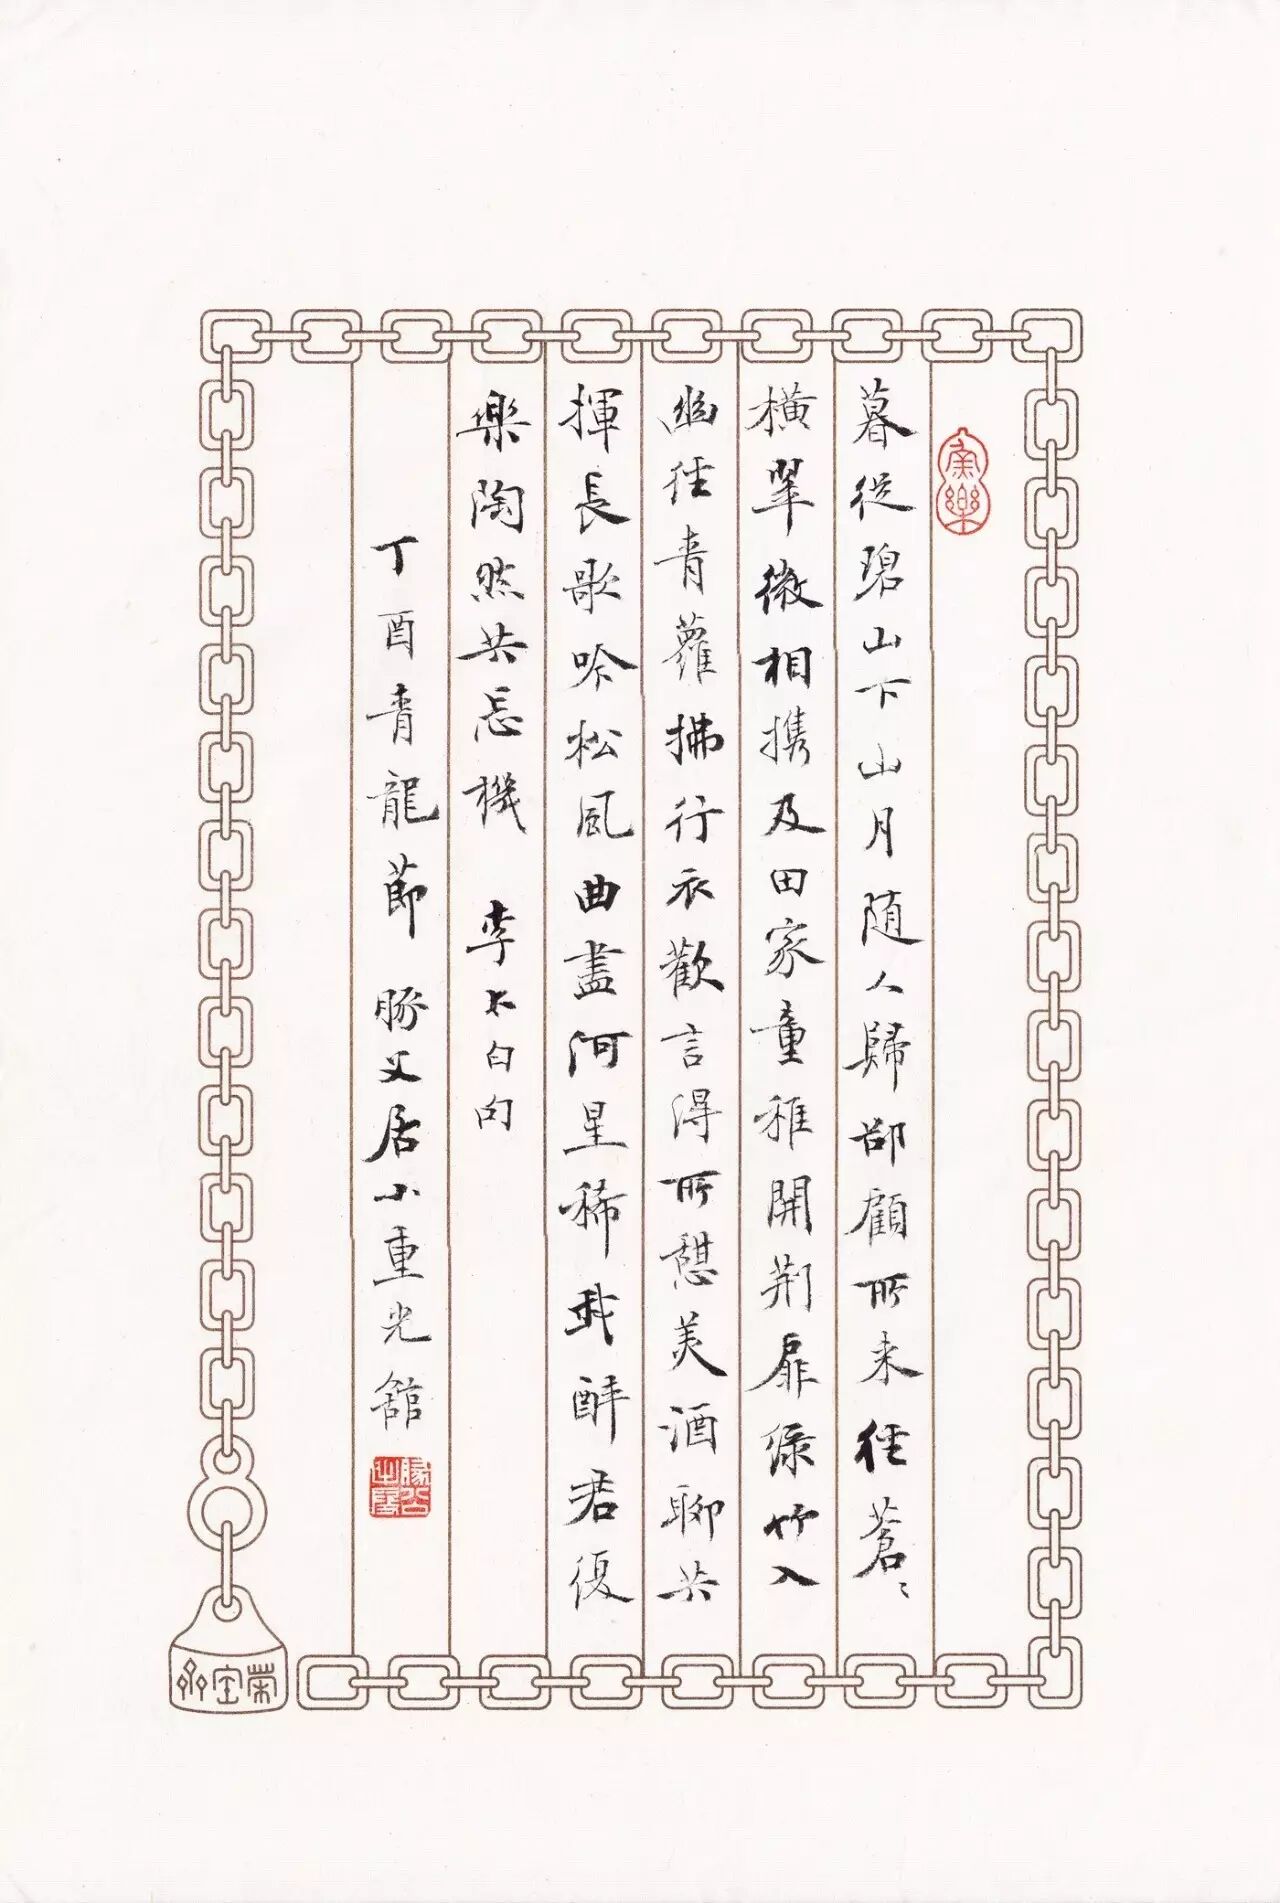 暮從碧山下山月随人歸郤顧所来径蒼〻
橫翠微相携及田家童稚開荆扉绿竹入
幽径青蘿拂行衣歡言得所憩美酒聊共
揮長歌吟松風曲盡河星稀我醉君復
樂陶然共忘機 李太白句
丁酉青龍節 豚叉居小重光館
榮宝